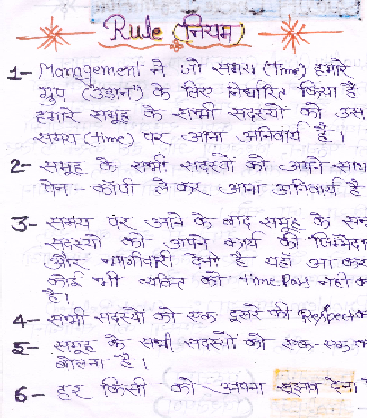 Rule (नियम)
1- Management ने जो समय (Time) हमारे
ग्रुप ("उड़ान") के लिए निर्धारित किया है
हमारे समूह के सभी सदस्यों को उस
समय (time) पर आना अनिवार्य है।
2- समूह के सभी सदस्यों को अपने साथ
पेन - कॉपी लेकर आना अनिवार्य है
3- समय पर आने के बाद समूह के सभ
सदस्यो को अपने कार्य की जिम्मेदा
और भागीदारी देना है यहाँ आ कर
कोई भी व्यक्ति को time pass नहीं क
है।
4- सभी सदस्यों को एक दूसरे की Respect क
5- समूह के सभी सदस्यों को एक-एक क
बोलना है।
6- हर किसी को अपना सुझाव देना